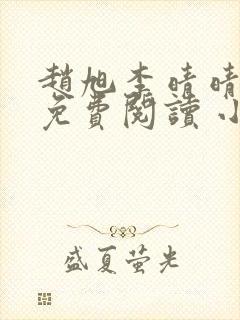 趙旭李晴晴
免費閱讀小
盛夏萤光